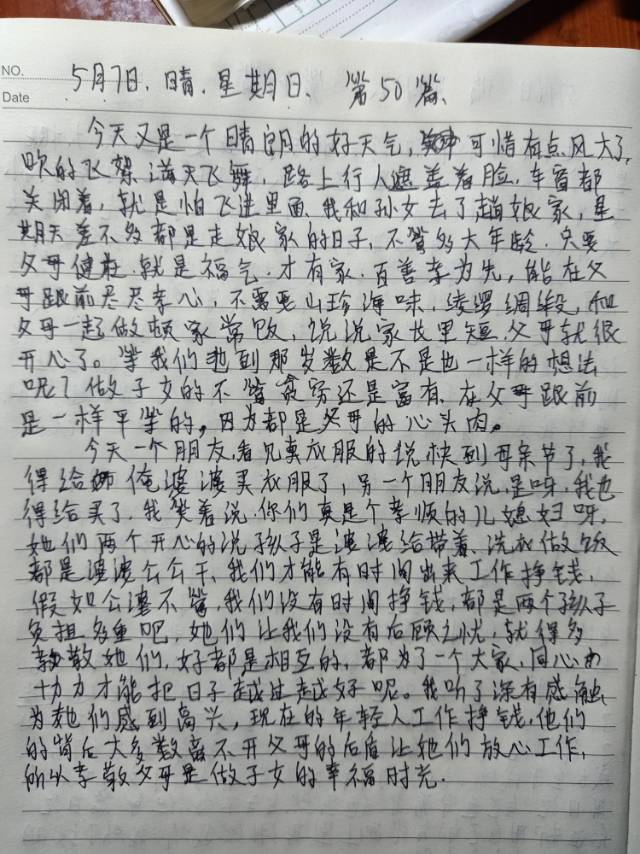 NO.
Date
5月7日.晴.星期日、 第50篇、
今天又是一个晴朗的好天气,可惜有点风大了,
吹的飞絮满天飞舞.路上行人遮盖着脸.车窗都
关闭着,就是怕飞进里面.我和孙女去了趟娘家,星
期天差不多都是走娘家的日子,不管多大年龄.只要
父母健在.就是福气.才有家.百善孝为先,能在父
母跟前尽尽孝心,不需要山珍海味.绫罗绸缎,和
父母一起做顿家常饭,说说家长里短.父母就很
开心了。等我们到那岁数是不是也一样的想法
呢?做子女的不管贫穷还是富有.在父母跟前
是一样平等的,因为都是父母的心头肉。
今天一个朋友,看见卖衣服的说快到母亲节了,我
得给俺婆婆买衣服了,另一个朋友说,是呀.我也
得给买了.我笑着说.你们真是个孝顺的儿媳妇呀.
她们两个开心的说孩子是婆婆给带着.洗衣做饭
都是婆婆公公干、我们才能有时间出来工作挣钱.
假如公婆不管,我们没有时间挣钱,都是两个孩子
负担多重吧.她们让我们没有后顾之忧,就得多
孝敬她们,好都是相互的,都为了一个大家,同心
协力才能把日子越过越好呢。我听了深有感触、
为她们感到高兴,现在的年轻人工作挣钱,他们
的背后大多数离不开父母的后盾让他们放心工作,
所以孝敬父母是做子女的幸福时光.